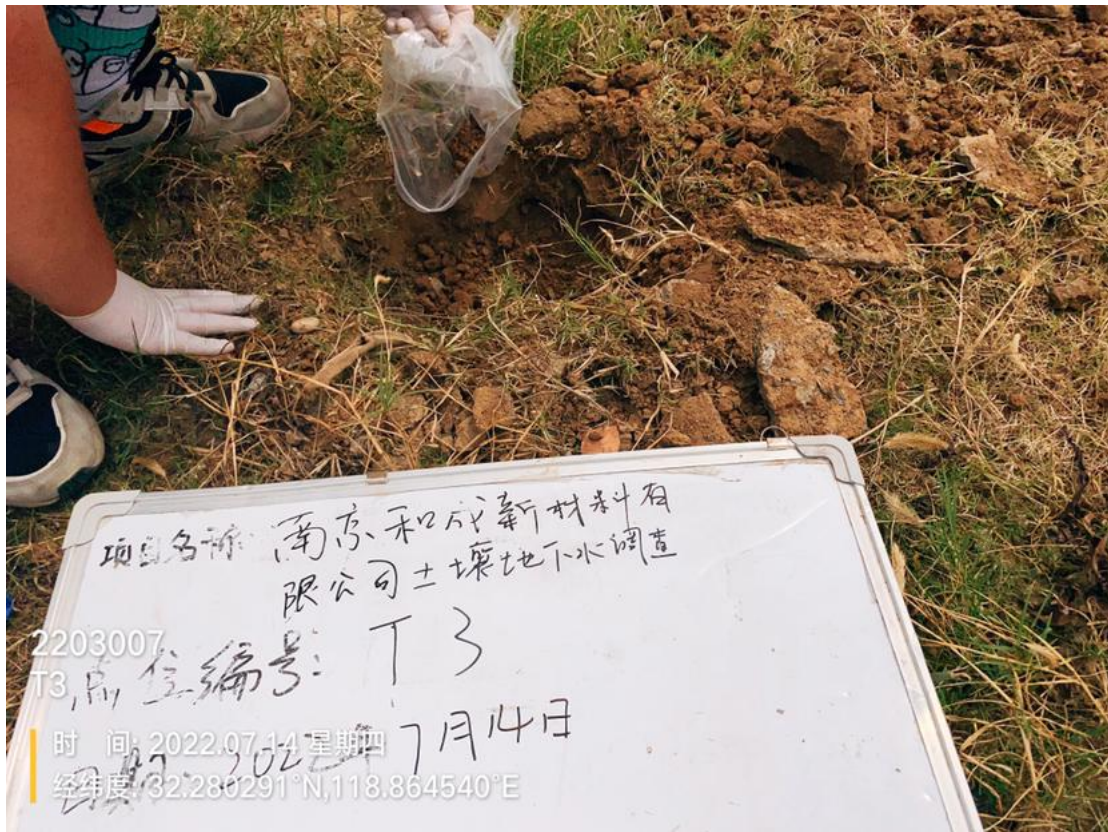 项目名称: 南京和成新材料有
限公司土壤地下水调查
点位编号: T3
日期: 2022年7月14日
2203007
T3
时 间: 2022.07.14 星期四
经纬度: 32.280291°N,118.864540°E